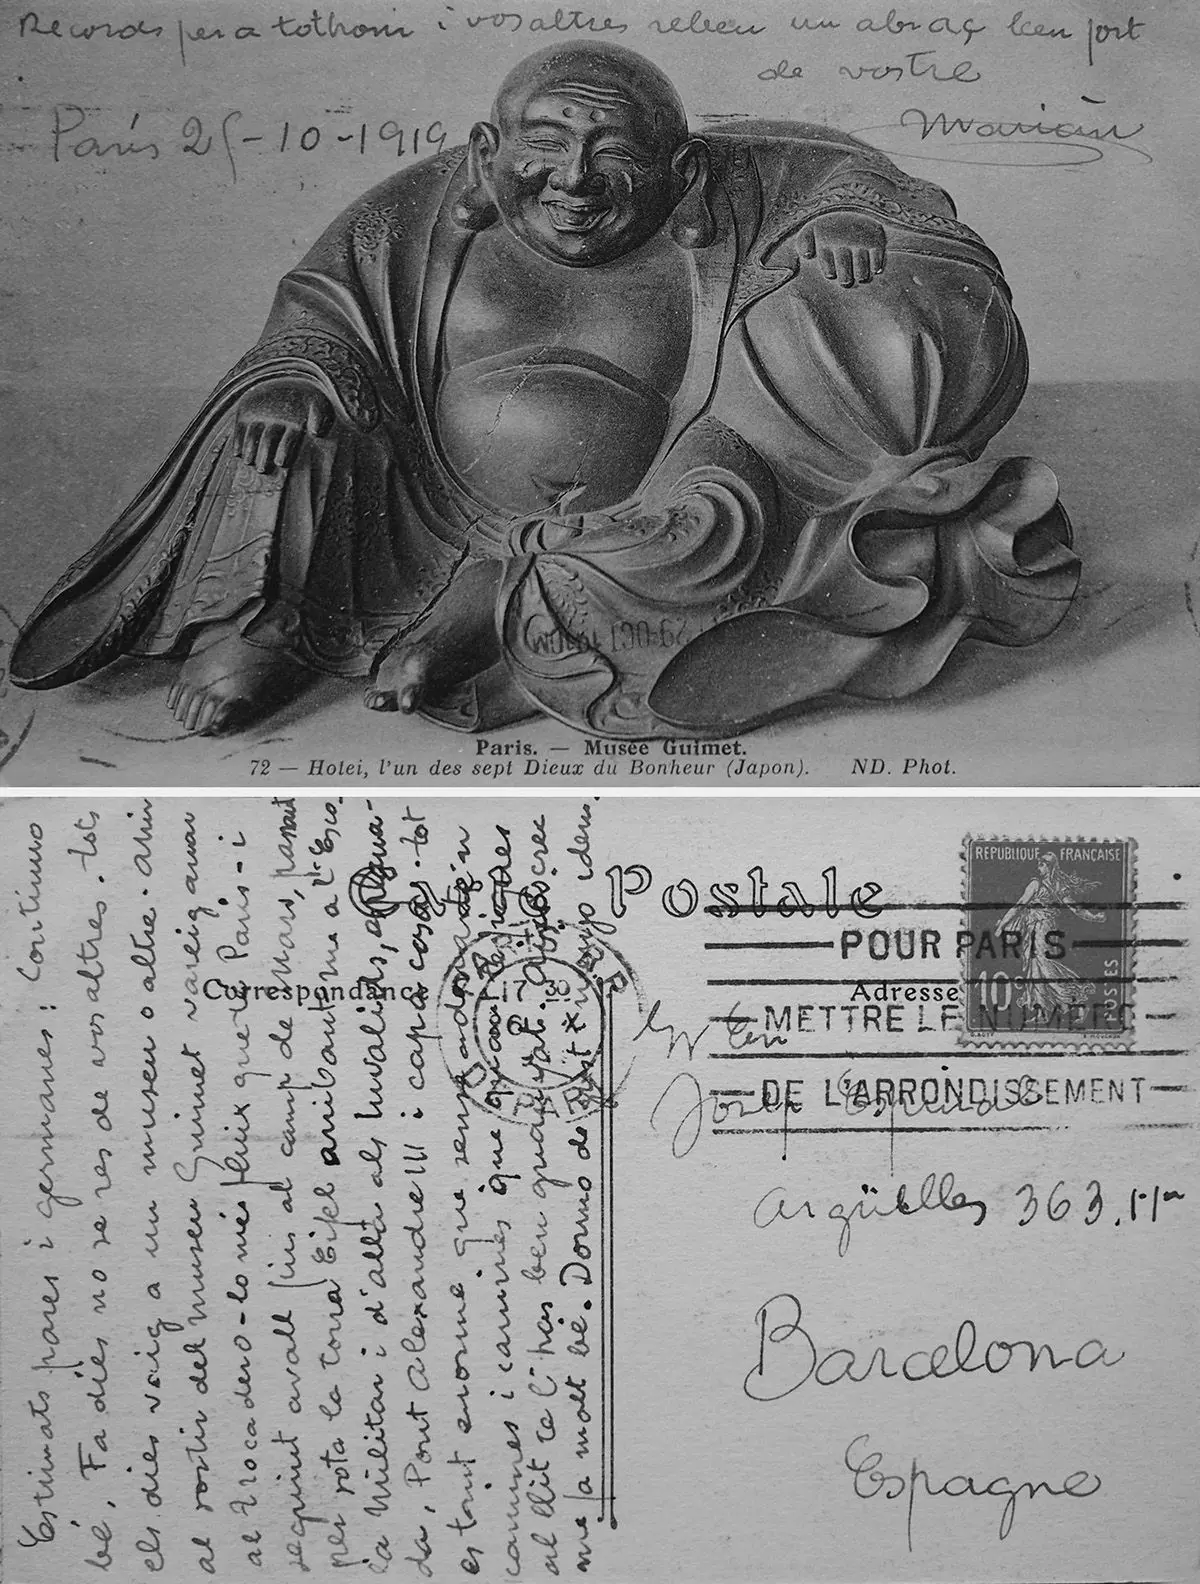 Records per a tothom i vosaltres rebeu un abraç ben fort
de vostre
Marián
París 25-10-1919
Paris. — Musée Guimet.
72 — Hotei, l'un des sept Dieux du Bonheur (Japon). ND. Phot.
Carte Postale
Correspondance
Adresse
REPUBLIQUE FRANÇAISE
10c POSTES
POUR PARIS
METTRE LE NUMÉRO
DE L'ARRONDISSEMENT
17 30
PARIS
Estimats pares i germanes: Continuo
bé. Fa dies no se res de vosaltres. tots
els dies vaig a un museu o altre. ahir
al sortir del museu Guimet vareig anar
al Trocadero - lo mes feliç que te París - i
seguint avall fins al camp de Mars, passant
per sota la torra Eifel arribantme a l'Esco-
la Militar i d'allà als Invalids, anigua-
da, Pont Alexandre III i cap a casa. tot
es tant enorme que sens adonarten
camines i camines que quan te
al llit te l'has ben guanyat.
me fa molt bé. Dormo de gust
Josep Espinal
Argüelles 363. 1r 1a
Barcelona
Espagne